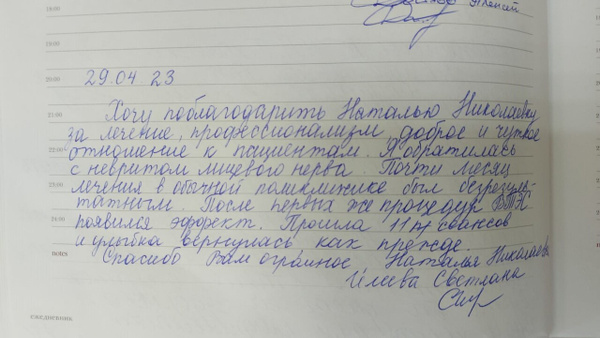 18:00
Алексей
19:00
20:00
29.04 23
21:00
Хочу поблагодарить Наталью Николаевну
за лечение, профессионализм, доброе и чуткое
22:00
отношение к пациентам. Я обратилась
с невритом лицевого нерва. Почти месяц
23:00
лечения в обычной поликлинике был безрезуль-
татным. После первых же процедур ВТЭС
24:00
появился эффект. Прошла 11 сеансов
и улыбка вернулась как прежде.
notes
Спасибо Вам огромное Наталья Николаевна
Илиева Светлана
ежедневник